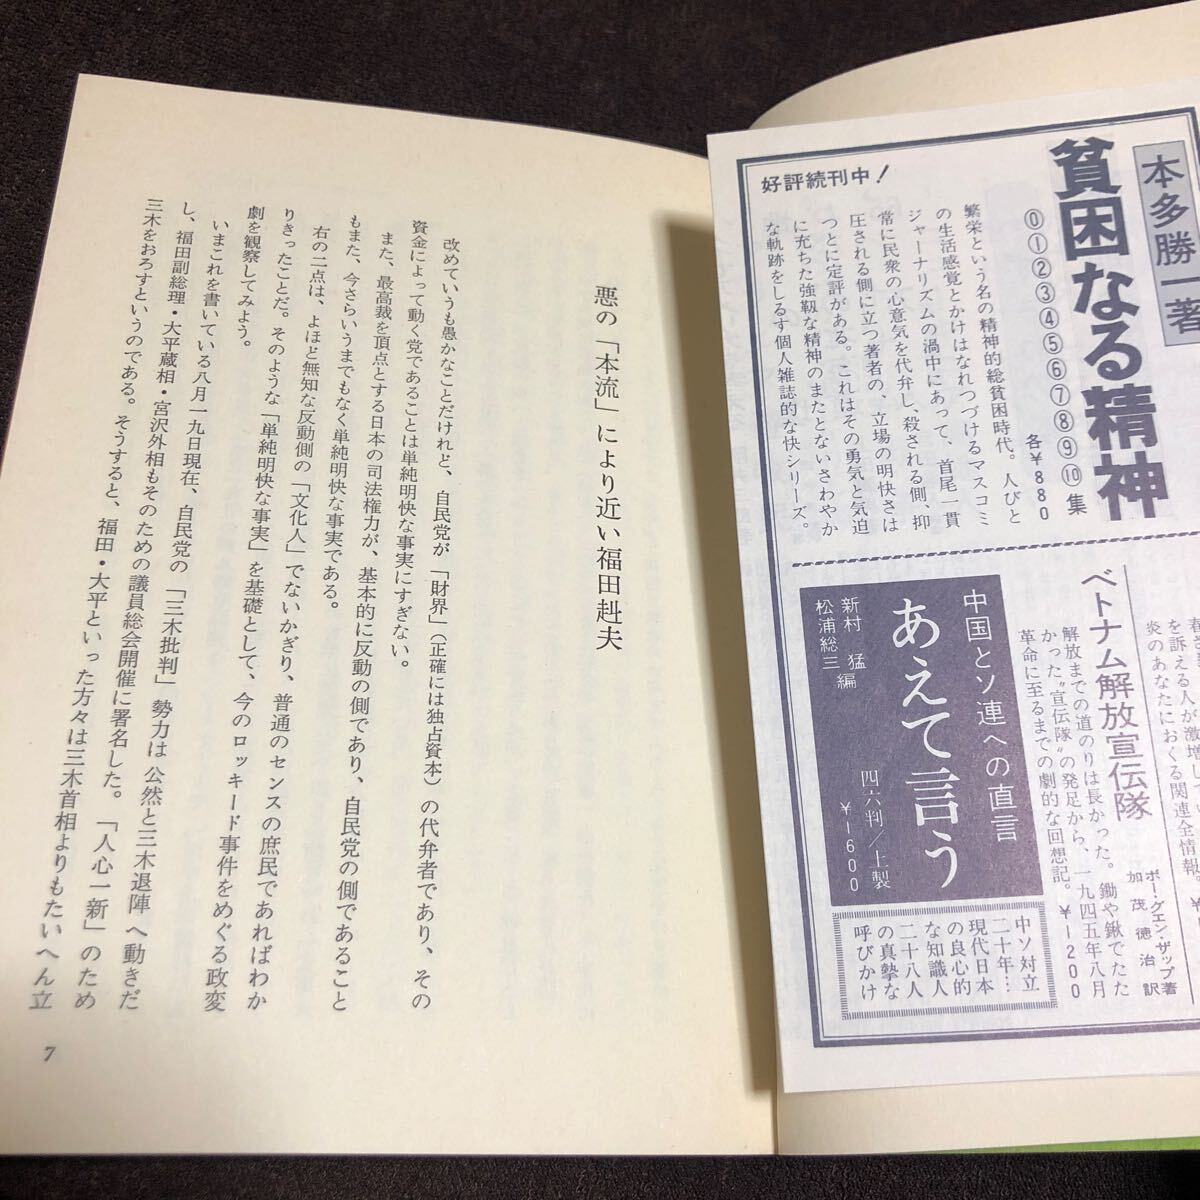 悪の「本流」により近い福田赳夫
改めていうも愚かなことだけれど、自民党が「財界」(正確には独占資本)の代弁者であり、その
資金によって動く党であることは単純明快な事実にすぎない。
また、最高裁を頂点とする日本の司法権力が、基本的に反動の側であり、自民党の側であること
もまた、今さらいうまでもなく単純明快な事実である。
右の二点は、よほど無知な反動側の「文化人」でないかぎり、普通のセンスの庶民であればわか
りきったことだ。そのような「単純明快な事実」を基礎として、今のロッキード事件をめぐる政変
劇を観察してみよう。
いまこれを書いている八月一九日現在、自民党の「三木批判」勢力は公然と三木退陣へ動きだ
し、福田副総理・大平蔵相・宮沢外相もそのための議員総会開催に署名した。「人心一新」のため
三木をおろすというのである。そうすると、福田・大平といった方々は三木首相よりもたいへん立
7
本多勝一著
貧困なる精神
⓪①②③④⑤⑥⑦⑧⑨⑩集
各¥880
好評続刊中!
繁栄という名の精神的総貧困時代。人びと
の生活感覚とかけはなれつづけるマスコミ
ジャーナリズムの渦中にあって、首尾一貫
常に民衆の心意気を代弁し、殺される側、抑
圧される側に立つ著者の、立場の明快さは
つとに定評がある。これはその勇気と気迫
に充ちた強靱な精神のまたとないさわやか
な軌跡をしるす個人雑誌的な快シリーズ。
を訴える人が激増し
炎のあなたにおくる関連全情報。
ベトナム解放宣伝隊
ボー・グエン・ザップ著
加茂徳治訳
解放までの道のりは長かった。鋤や鍬でたた
かった"宣伝隊"の発足から、一九四五年八月
革命に至るまでの劇的な回想記。¥1200
中国とソ連への直言
あえて言う
新村 猛編
松浦総三
四六判/上製
¥1600
中ソ対立
二十年…
現代日本
の良心的
な知識人
二十八人
の真摯な
呼びかけ